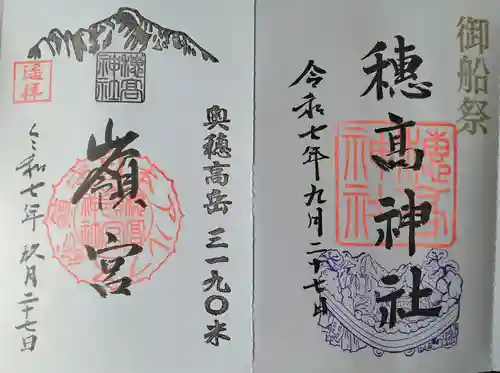 御船祭
穗髙神社
穗髙神社
令和七年九月二十七日
奥穂高岳 三一九〇米
穗髙神社
嶺宮
遥拝
令和七年玖月二十七日